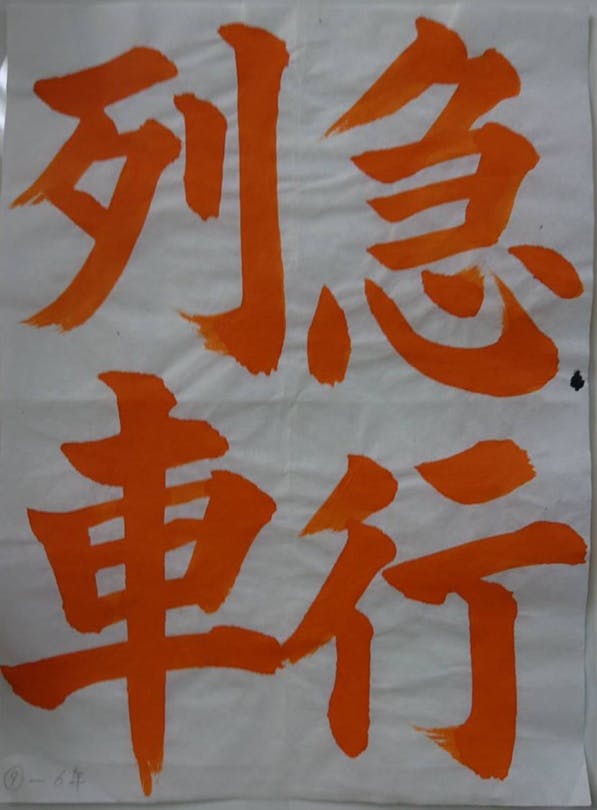 急行
列車
⑨-6年